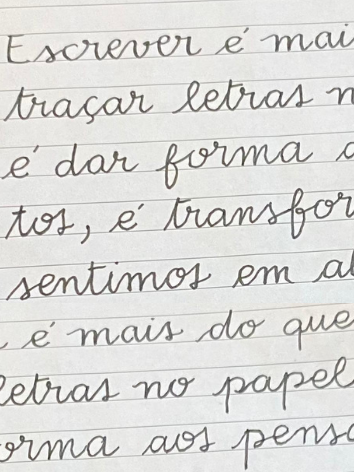 Escrever é mai
traçar letras n
é dar forma a
tos, é transfor
sentimos em al
é mais do que
letras no papel
orma aos pensa